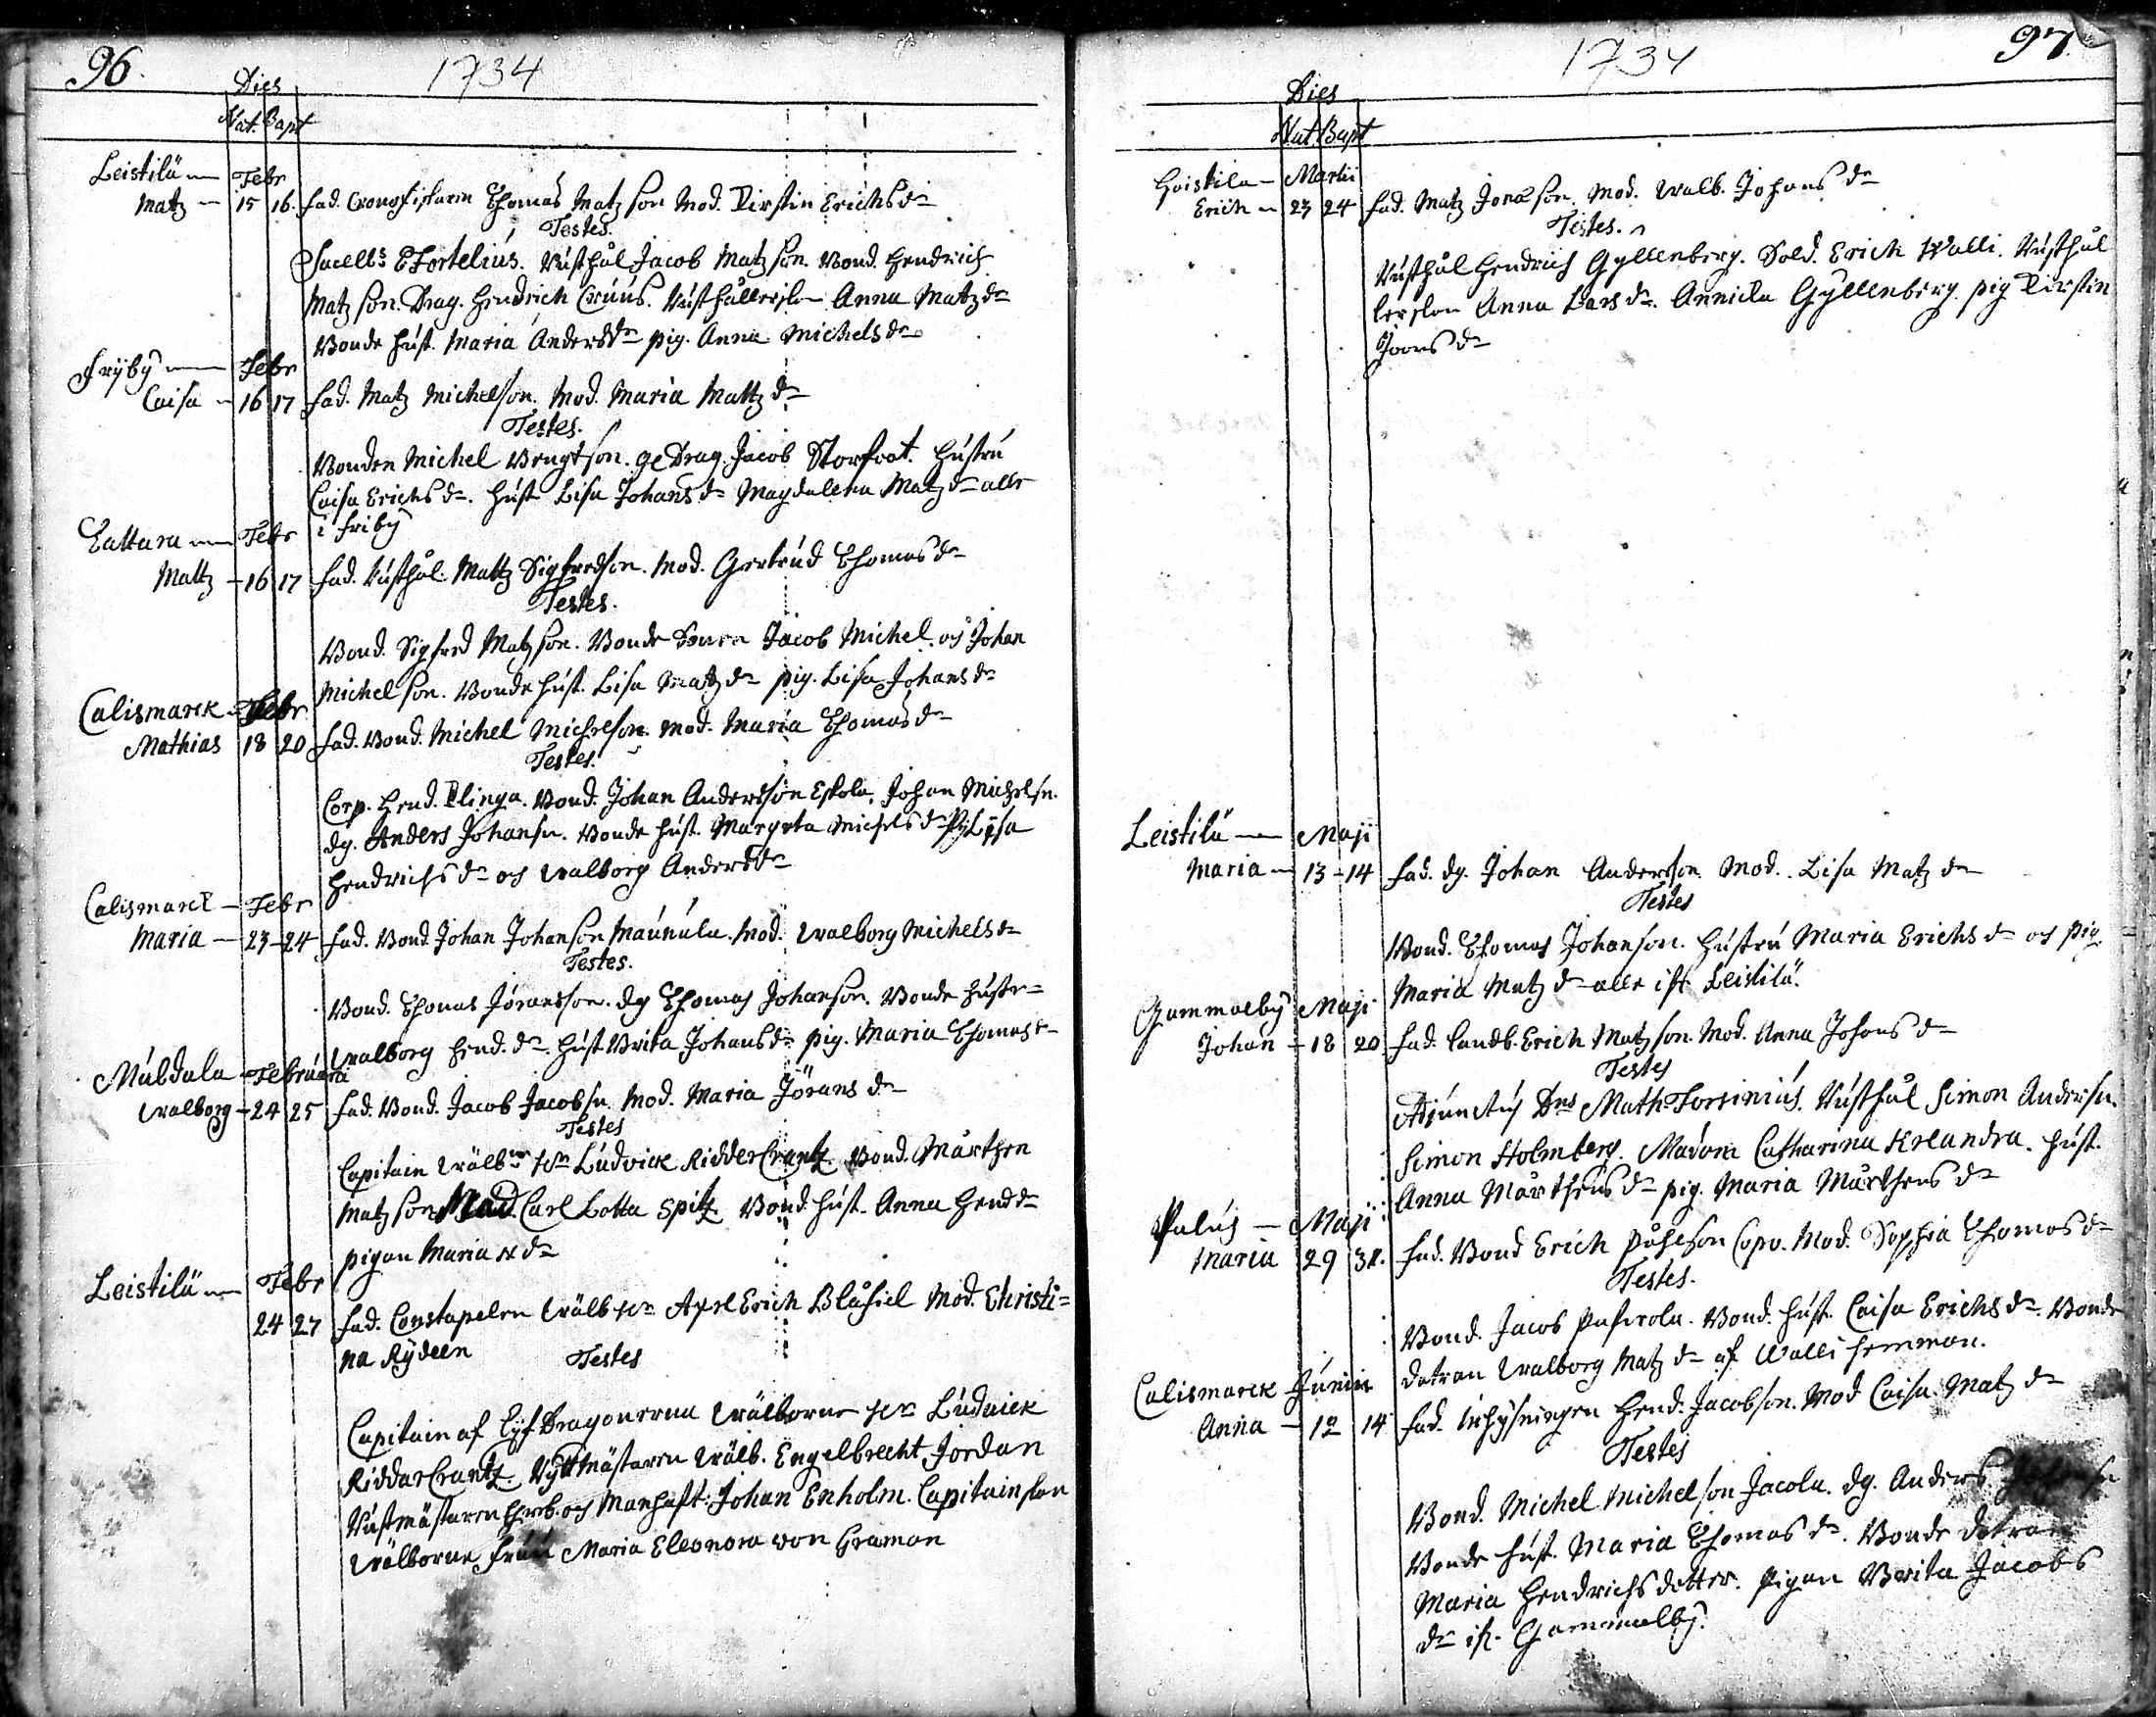 96.
1734
Dies
Nat. Bapt
Leistilä Febr
Matz 15 16. fad. Thomas Matzson Mod. Kirstin Erichs dr
Testes.
Sacells Fortelius. Rusthål Jacob Matzson. Bond. Hendrich
Matzson. Drag. Hendrich Cruus. Anna Matz dr
Bonde hust. Maria Anders dr pig. Anna Michels dr
Frÿbÿ Febr
Caisa 16 17 fad. Matz Michelson. Mod. Maria Mattz dr
Testes.
Bonden Michel Bengtson. Drag. Jacob Storfoot. Hustru
Caisa Erichs dr. Hust Lisa Johans dr Magdallena Matz dr alle
i fribÿ
Lattara Febr
Mattz 16 17 fad. Rusthål. Mattz Sigfredson. Mod. Gertrud Thomas dr
Testes.
Bond. Sigfred Matzson. Bonde Jacob Michel. och Johan
Michelson. Bonde hust. Lisa Matz dr pig. Lisa Johans dr
Calismarck Febr
Mathias 18 20 fad. Bond. Michel Michelson. Mod. Maria Thomas dr
Testes.
Corp. Hend. Klinga. Bond. Johan Andersson Eskola. Johan Michelsn.
dg. Anders Johansn. Bonde hust. Margeta Michels dr Pig Lijsa
Hendrichs dr och Walborg Anders dr
Calismarck Febr
Maria 23 24 fad. Bond. Johan Johanson Maunula. Mod. Walborg Michels dr
Testes.
Bond. Thomas Jöransson. dg Thomas Johanson. Bonde Hustr=
Walborg Hend. dr. Hust Brita Johans dr pig. Maria Thomas dr
Muldala Februarii
Walborg 24 25 fad. Bond. Jacob Jacobsn. Mod. Maria Jörans dr
Testes
Capitain Wälb. Hr Ludvick RidderCrantz Bond. Mårthen
Matzson Mad. Carl Lotta Spitz Bond. hust. Anna Hend dr
pigan Maria dr
Leistilä Febr
24 27 fad. Constapelen Wälb Hr Axel Erich Blåfiel Mod. Christi=
na Rÿdeen
Testes
Capitain af Lijf Dragonerna Wälborne Hr Ludvick
RiddarCrantz. Rÿttmästaren Wälb. Engelbrecht Jordan
Rustmästaren och Manhaft. Johan Enholm. Capitainskan
Wälborne fruu Maria Eleonora von Graman
97.
1734
Dies
Nat Bapt
Heistila Martii
Erich 23 24 fad. Matz Jonæson. Mod. Walb. Johans dr
Testes.
Rusthål Hendrich Gyllenberg. Sold. Erich Walli. Rusthål
lerskan Anna Lars dr. Annicka Gyllenberg. pig Kirstin
Joons dr
Leistilä Maji
Maria 13 14 fad. dg. Johan Anderson Mod. Lisa Matz dr
Testes
Bond. Thomas Johanson. Hustru Maria Erichs dr och pig.
Maria Matz dr alle ifr Leistilä.
Gammalbÿ Maji
Johan 18 20 fad. Landb. Erich Matzson. Mod. Anna Johans dr
Testes
Adjunctus Dns Math. Forsinius. Rusthål Simon Andersn.
Simon Holmberg. Madam Catharina Kreandra. hust.
Anna Mårthens dr pig. Maria Mårthens dr
Palus Maji
Maria 29 31. fad. Bond Erich Påhlson Mod. Sophia Thomas dr
Testes.
Bond. Jacob Bond. hust. Caisa Erichs dr. Bonde
dotran Walborg Matz dr af Walli hemman.
Calismarck Junii
Anna 12 14 fad. Inhÿsningen Hend. Jacobson. Mod Caisa Matz dr
Testes
Bond. Michel Michelson Jacola. dg. Anders
Bonde hust. Maria Thomas dr. Bonde dotran
Maria Hendrichs dotter. Pigan Brita Jacobs
dr ifr. Gammalbÿ.